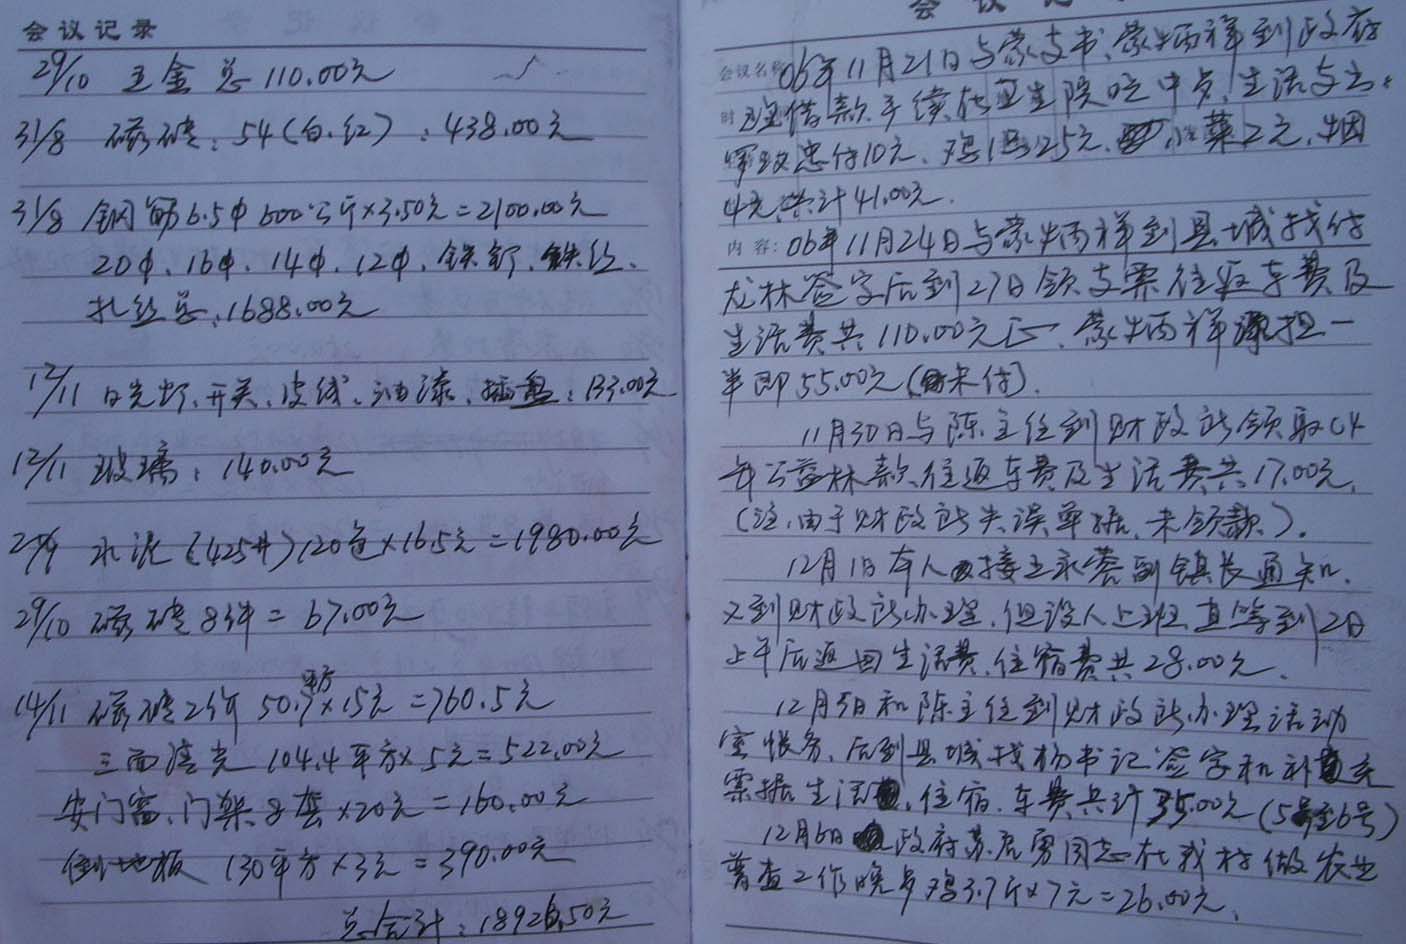 会议记录
29/10 五金总110.00元
31/8 磁砖:54(白.红):438.00元
31/8 钢筋6.5φ600公斤×3.50元=2100.00元
20φ、16φ、14φ、12φ、铁钉、铁丝、
扎丝总:1688.00元
12/11 日光灯、开关、皮线、油漆、插盘:133.00元
12/11 玻璃:140.00元
29/9 水泥(425#)120包×16.5元=1980.00元
29/10 磁砖8件=67.00元
14/11 磁砖2行 50.7平方×15元=760.5元
三面清光 104.4平方×5元=522.00元
安门窗、门架8套×20元=160.00元
倒地板 130平方×3元=390.00元
总合计:18926.50元
会议记
会议名称 06年11月21日与蒙支书、蒙炳祥到政府
时 办理借款手续在卫生院吃中步,生活与
忠付10元、鸡1只25元、小菜2元、烟
4元,共计41.00元.
内容:06年11月24日与蒙炳祥到县城找付
龙林签字后到27日领支票往返车费及
生活费共110.00元正、蒙炳祥承担一
半即55.00元(未付).
11月30日与陈主任到财政所领取04
年公益林款往返车费及生活费共17.00元,
(注,由于财政所失误单据、未领款).
12月1日本人接王永蓉副镇长通知、
又到财政所办理,但没人上班,直等到2日
上午后返回生活费、住宿费共28.00元、
12月5日和陈主任到财政所办理活动
室帐务,后到县城找杨书记签字和补充
票据生活、住宿、车费共计35.00元(5号至6号)
12月6日政府 同志在我村做农业
普查工作晚步鸡3.7斤×7元=26.00元、